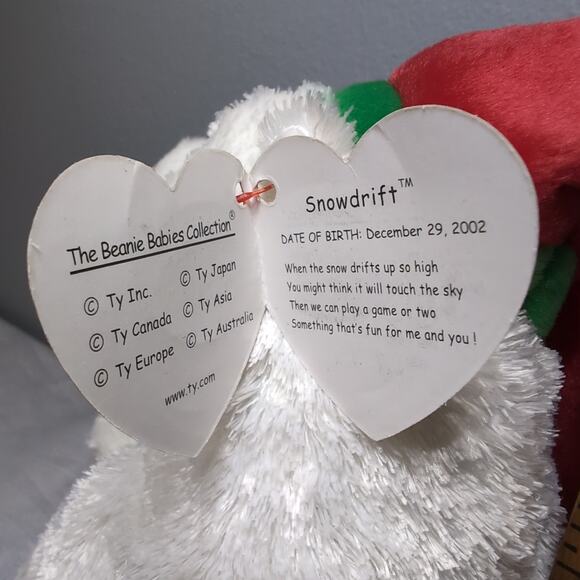 The Beanie Babies Collection®
© Ty Inc.
© Ty Canada
© Ty Europe
© Ty Japan
© Ty Asia
© Ty Australia
www.ty.com
Snowdrift™
DATE OF BIRTH: December 29, 2002
When the snow drifts up so high
You might think it will touch the sky
Then we can play a game or two
Something that's fun for me and you !